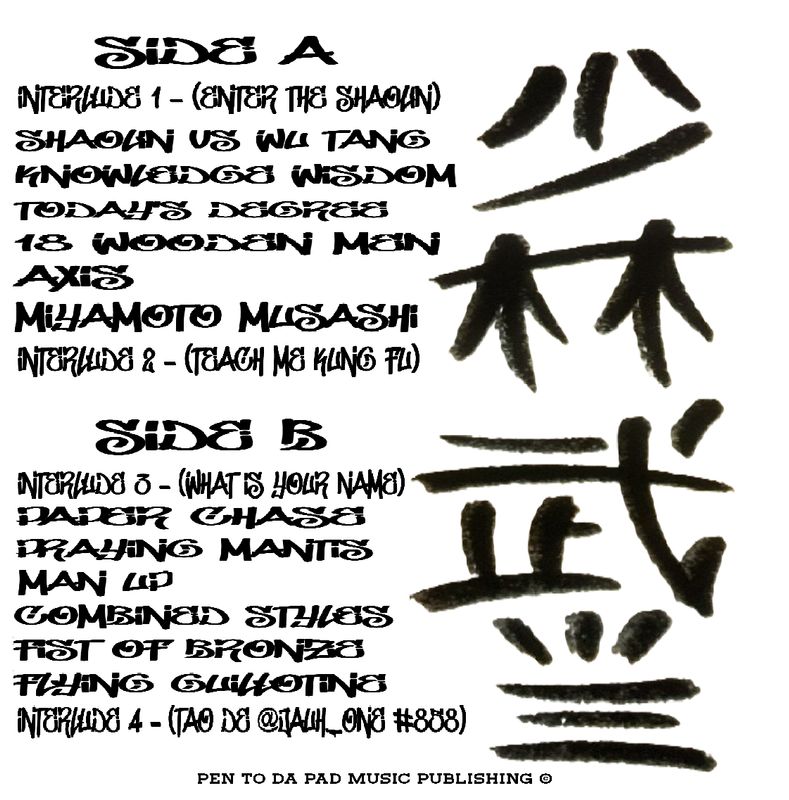 SIDE A
INTERLUDE 1 - (ENTER THE SHAOLIN)
SHAOLIN VS WU TANG
KNOWLEDGE WISDOM
TODAY'S DEGREE
18 WOODEN MEN
AXIS
MIYAMOTO MUSASHI
INTERLUDE 2 - (TEACH ME KUNG FU)
SIDE B
INTERLUDE 3 - (WHAT IS YOUR NAME)
PAPER CHASE
PRAYING MANTIS
MAN UP
COMBINED STYLES
FIST OF BRONZE
FLYING GUILLOTINE
INTERLUDE 4 - (TAO DE #858)
少
林
武
PEN TO DA PAD MUSIC PUBLISHING ©